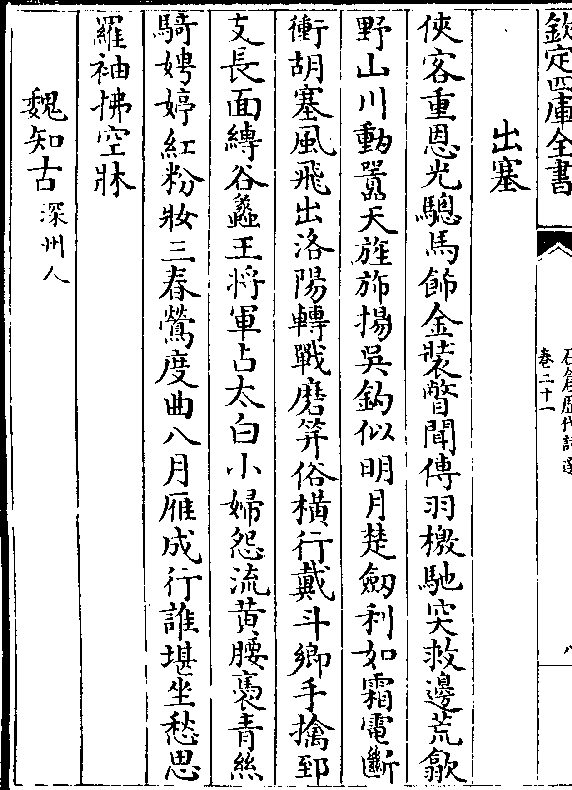 欽定四庫全書
石倉歷代詩選
卷二十一
八
出塞
俠客重恩光驄馬飾金裝瞥聞傳羽檄馳突救邊荒歙
野山川動囂天旌斾揚吳鈎似明月楚劒利如霜電斷
衝胡塞風飛出洛陽轉戰磨笄俗橫行戴斗鄉手擒郅
支長面縛谷蠡王將軍占太白小婦怨流黃腰褭青絲
騎娉婷紅粉妝三春鶯度曲八月雁成行誰堪坐愁思
羅袖拂空牀
魏知古深州人